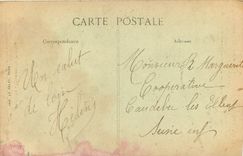 CARTE POSTALE
Correspondance
Adresse
Un salut
de loin
Monsieur R Marguerite
Coopérative
Caudebec les Elbeuf
Seine inf